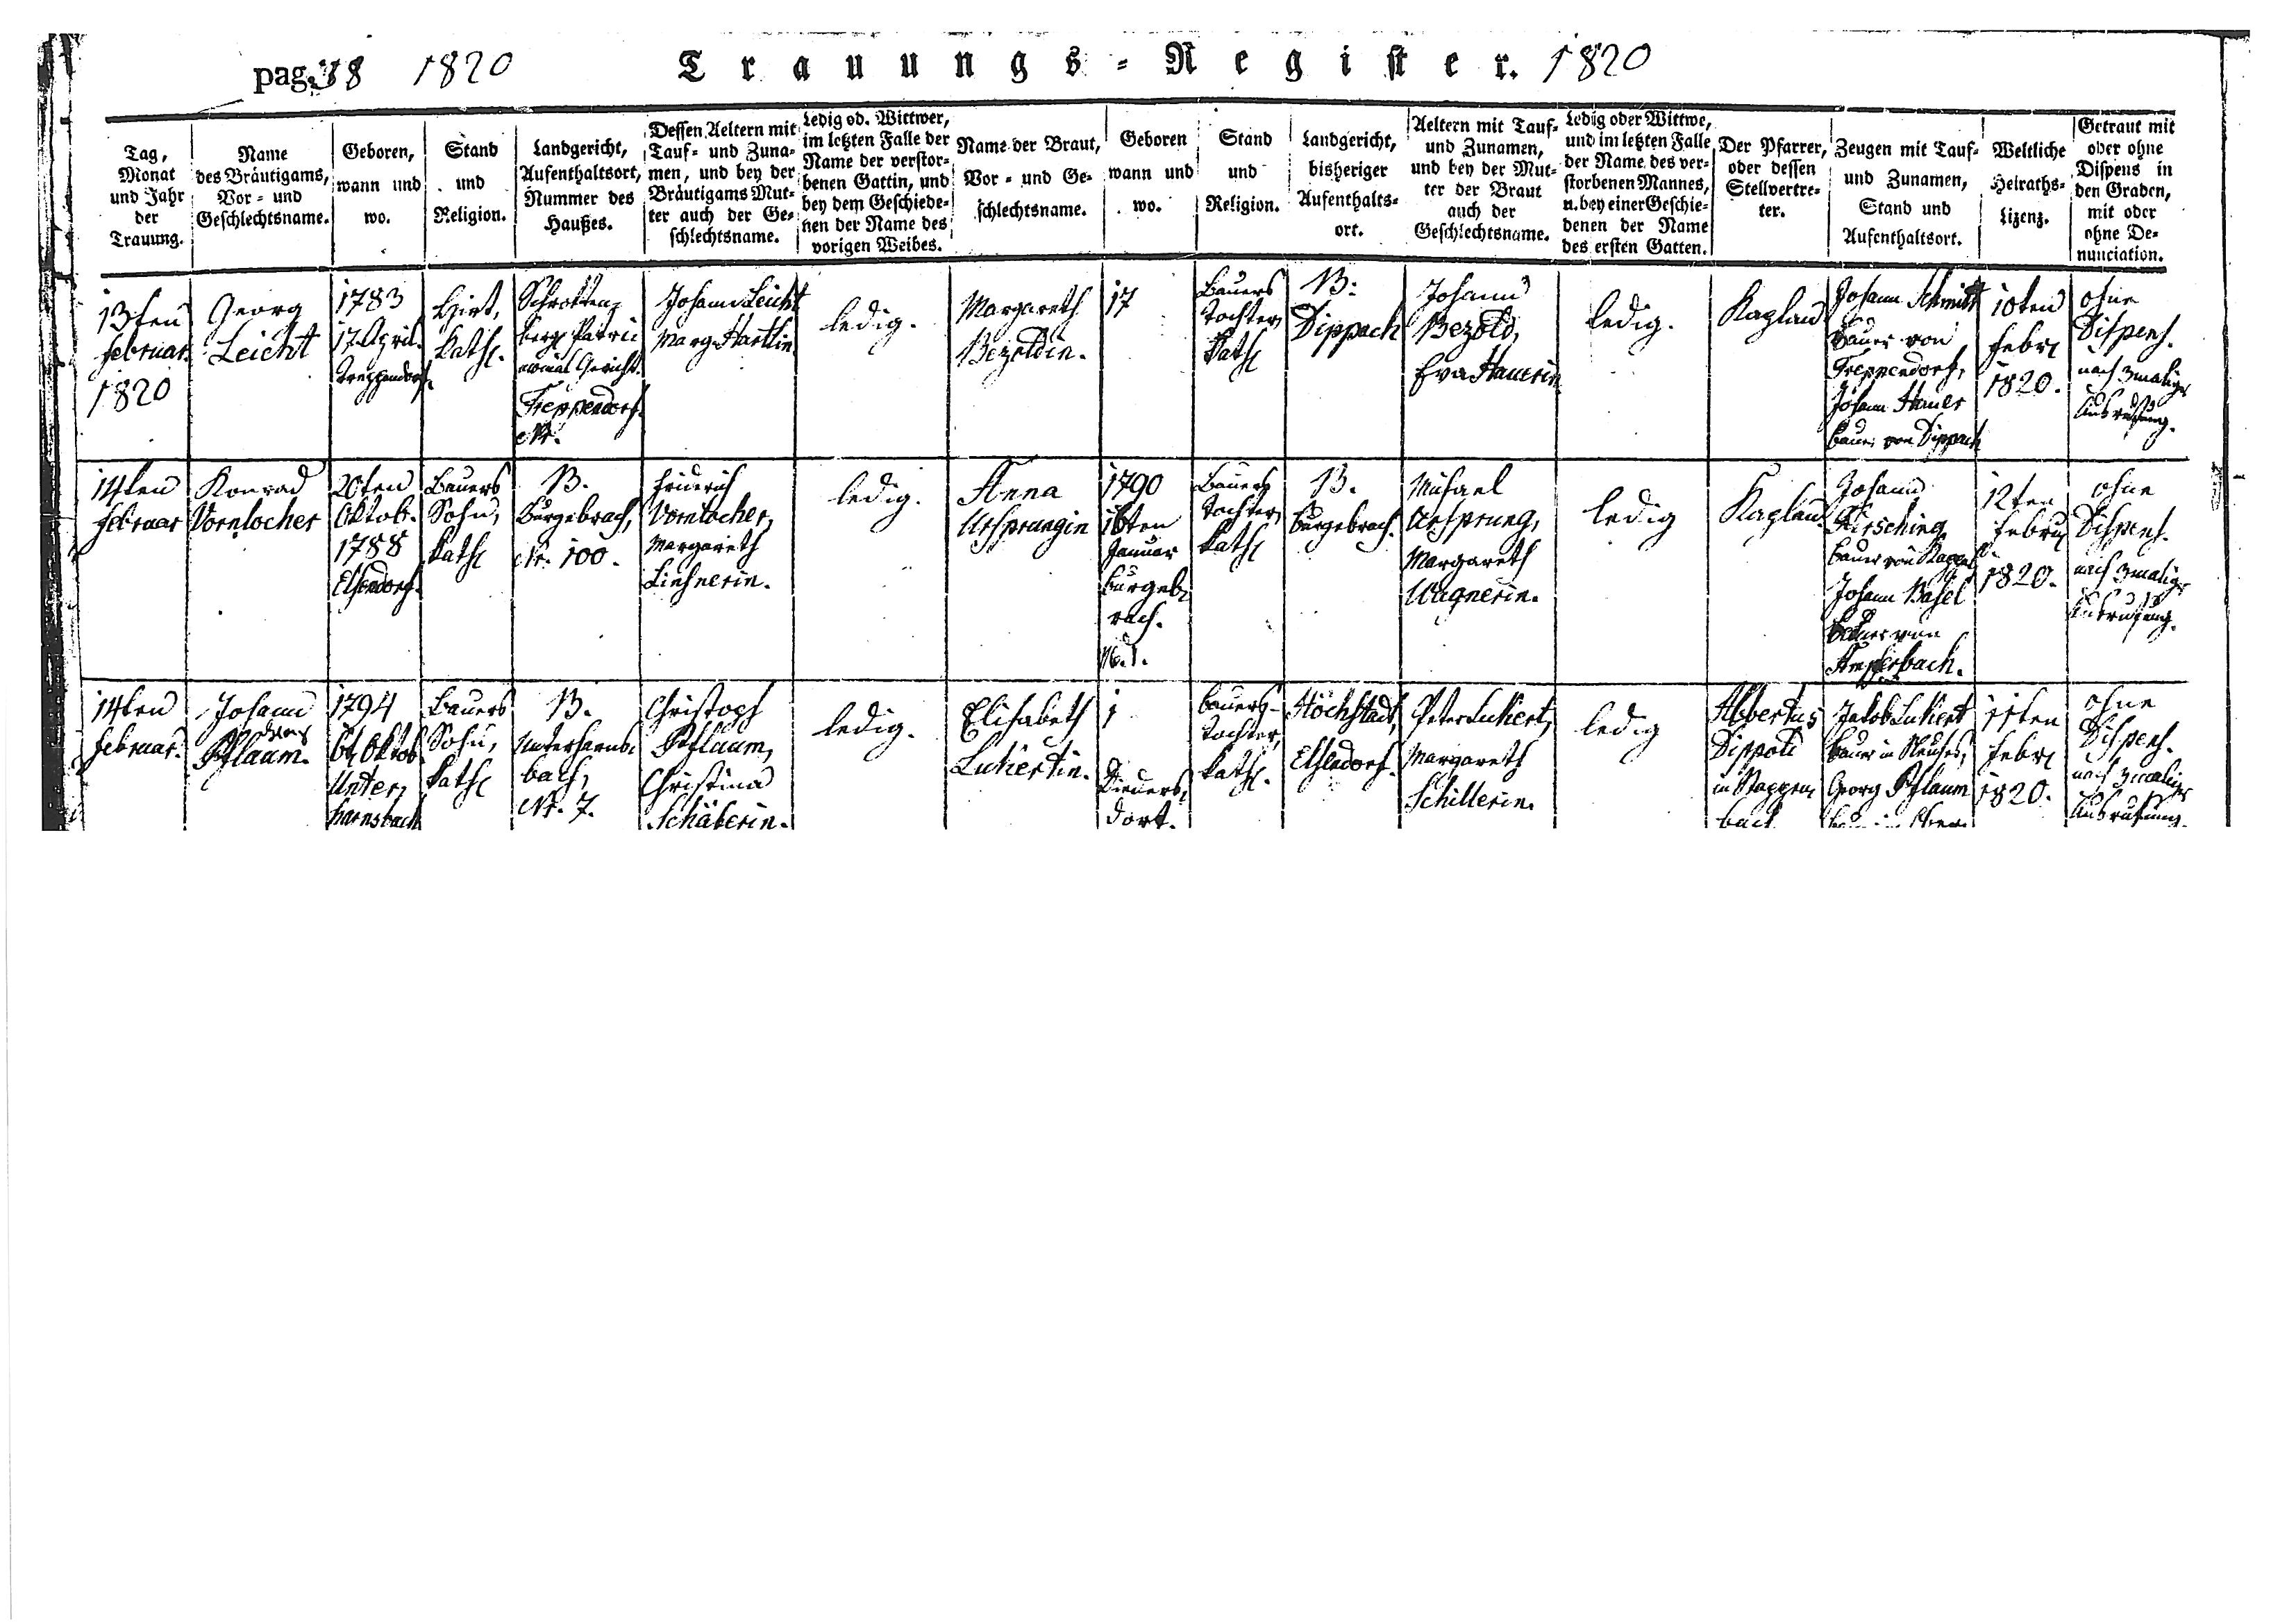 pag. 38 1820 Trauungs-Register. 1820
Tag,
Monat
und Jahr
der
Trauung.
Name
des Bräutigams,
Vor- und
Geschlechtsname.
Geboren,
wann und
wo.
Stand
und
Religion.
Landgericht,
Aufenthaltsort,
Nummer des
Haußes.
Dessen Aeltern mit
Tauf- und Zuna-
men, und bey der
Bräutigams Mut-
ter auch der Ge-
schlechtsname.
Ledig od. Wittwer,
im letzten Falle der
Name der verstor-
benen Gattin, und
bey dem Geschiede-
nen der Name des
vorigen Weibes.
Name der Braut,
Vor- und Ge-
schlechtsname.
Geboren
wann und
wo.
Stand
und
Religion.
Landgericht,
bisheriger
Aufenthalts-
ort.
Aeltern mit Tauf-
und Zunamen,
und bey der Mut-
ter der Braut
auch der
Geschlechtsname.
Ledig oder Wittwe,
und im letzten Falle
der Name des ver-
storbenen Mannes,
u. bey einer Geschie-
denen der Name
des ersten Gatten.
Der Pfarrer,
oder dessen
Stellvertre-
ter.
Zeugen mit Tauf-
und Zunamen,
Stand und
Aufenthaltsort.
Weltliche
Heiraths-
Lizenz.
Getraut mit
oder ohne
Dispens in
den Graden,
mit oder
ohne De-
nunciation.
13ten
Februar
1820
Georg
Leicht
1783
17. April.
Treppendorf.
Hirt,
Kath.
Schrotten-
berg Patri-
monial Gericht.
Treppendorf.
Nr.
Johann Leicht
Marg. Hartlin
ledig.
Margareth
Bezoldin.
17
Bauers
Tochter,
Kath
B.
Dippach
Johann
Bezold,
Eva Hauerin
ledig.
Kaplan
Johann Schmitt
Bauer von
Treppendorf,
Johann Hauer
Bauer von Dippach
10ten
Febr.
1820.
ohne
Dispens.
nach 3maliger
Ausrufung.
14ten
Februar
Konrad
Vornlocher
20ten
Oktob.
1788
Elsendorf.
Bauers
Sohn,
Kath
B.
Burgebrach,
Nr. 100.
Friderich
Vornlocher,
Margareth
Lieshnerin.
ledig.
Anna
Ursprungin
1790
16ten
Januar
Burgeb-
rach.
Bauers
Tochter,
Kath
B.
Burgebrach.
Michael
Ursprung,
Margareth
Wagnerin.
ledig
Kaplan
Johann
Kirsching
Bauer von
Johann Basel
Bauer von
Ampferbach.
12ten
Febru
1820.
ohne
Dispens.
nach 3maliger
Ausrufung.
14ten
Februar.
Johann
Pflaum.
1794
6t. Oktob.
Unter-
harnsbach
Bauers
Sohn,
Kath
B.
Unterharns-
bach,
Nr. 7.
Christoph
Pflaum,
Christina
Schäberin.
ledig.
Elisabeth
Lukertin.
1
dorf.
Bauers-
Tochter,
Kath.
Höchstadt,
Elsendorf.
Peter Lukert,
Margareth
Schillerin.
ledig
Albertus
Dippold
in Mappen-
bach
Jakob Lukert
Bauer in Neuses,
Georg Pflaum
11ten
Febr.
1820.
ohne
Dispens.
nach 3maliger
Ausrufung.